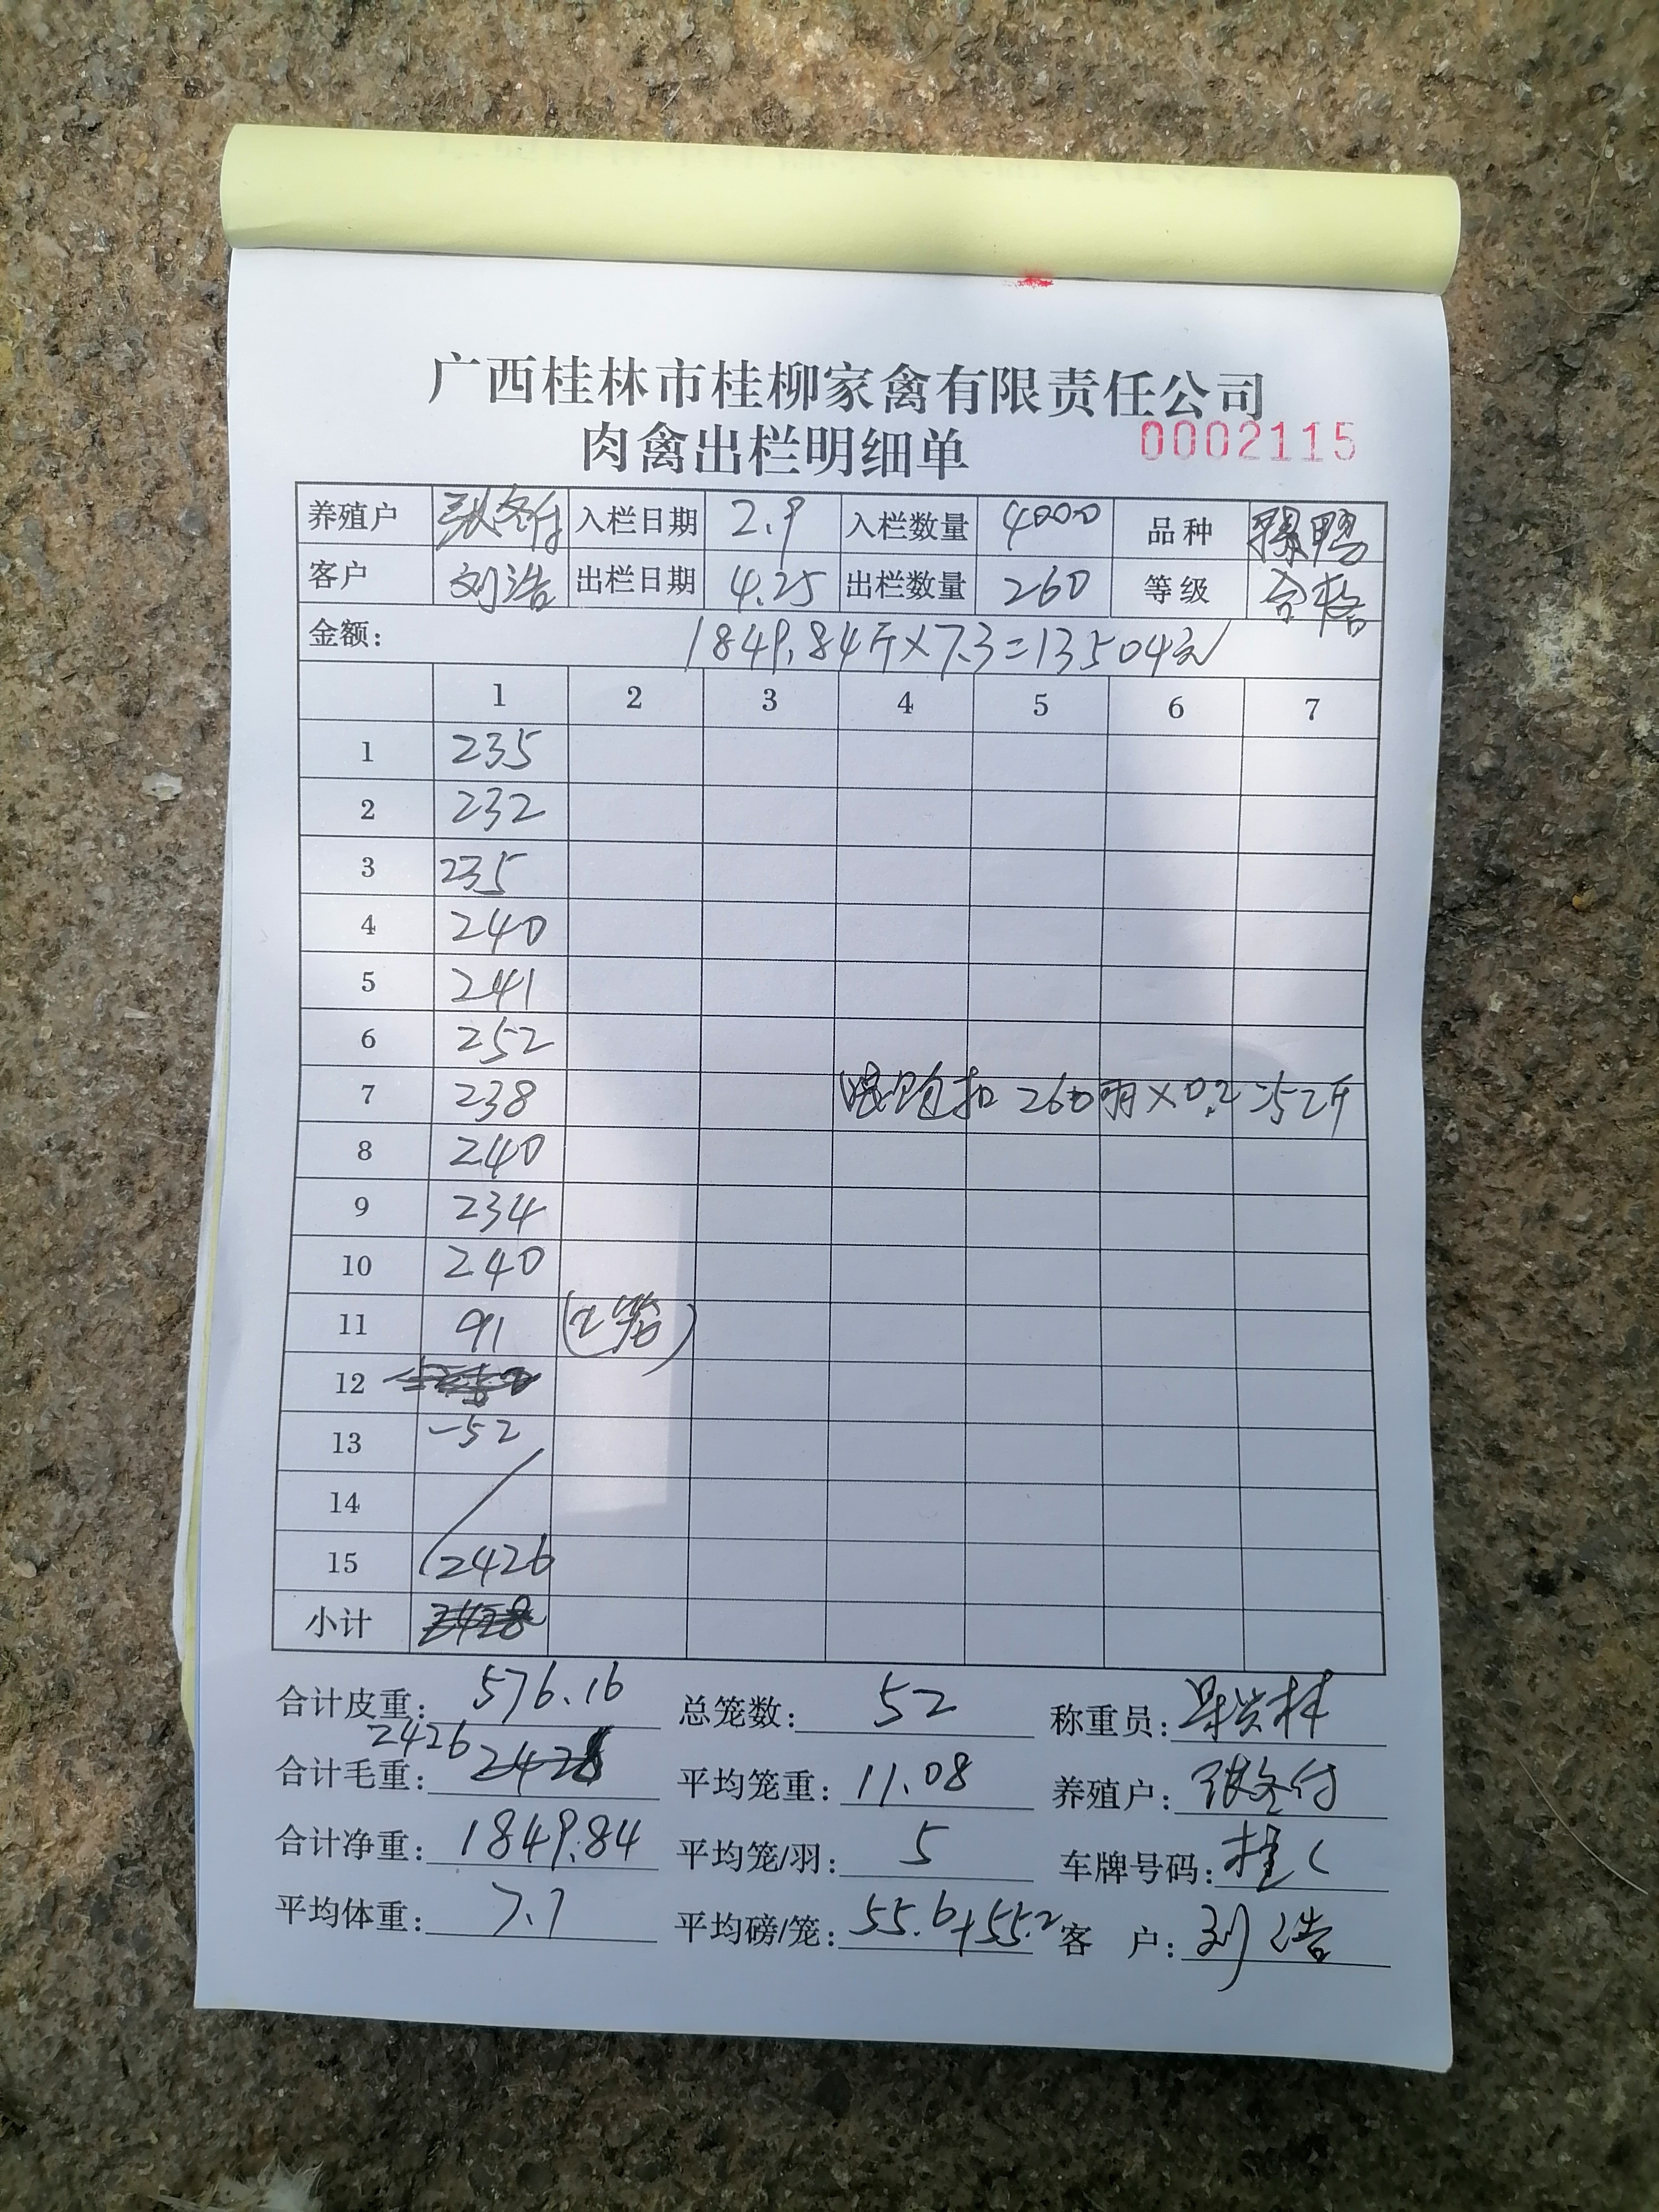 广西桂林市桂柳家禽有限责任公司
肉禽出栏明细单 0002115
养殖户 张冬付 入栏日期 2.9 入栏数量 4000 品种 骡鸭
客户 刘浩 出栏日期 4.25 出栏数量 260 等级 合格
金额: 1849.84斤×7.3=13504元
1 2 3 4 5 6 7
1 235
2 232
3 235
4 240
5 241
6 252
7 238 扣 260羽×0.2=52斤
8 240
9 234
10 240
11 91 (2笼)
12
13 -52
14
15 2426
小计 2428
合计皮重: 576.16 总笼数: 52 称重员:
合计毛重: 2426 2428 平均笼重: 11.08 养殖户: 张冬付
合计净重: 1849.84 平均笼/羽: 5 车牌号码: 桂C
平均体重: 7.1 平均磅/笼: 55.6+55.2 客 户: 刘浩